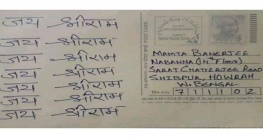 जय श्रीराम
जय श्रीराम
जय श्रीराम
जय श्रीराम
जय श्रीराम
जय श्रीराम
जय श्रीराम
MAMTA BANERJEE
NABANNA (14th FLOOR)
SARAT CHATTERJEE ROAD
SHIBPUR, HOWRAH
W. BENGAL
711102